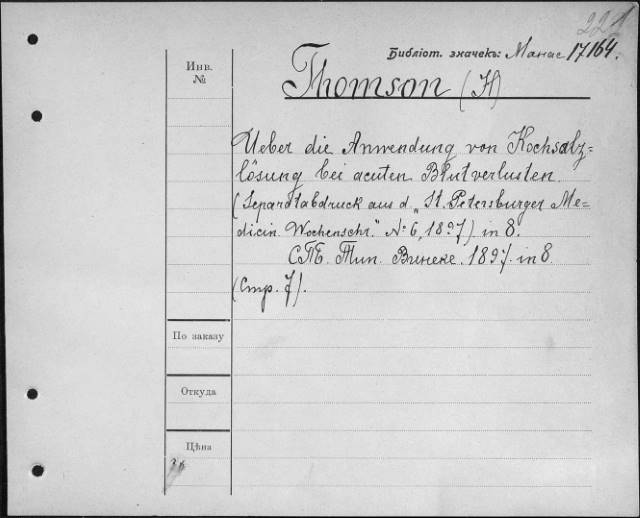 222
Библіот. значекъ: Манас 17164.
Инв. №
Thomson (H)
Ueber die Anwendung von Kochsalz=
lösung bei acuten Blutverlusten.
(Separatabdruck aus d. „St. Petersburger Me-
dicin. Wochenschr." № 6, 1897) in 8.
СПБ. Тип. Винеке. 1897. in 8.
(Стр. 7).
По заказу
Откуда
Цѣна